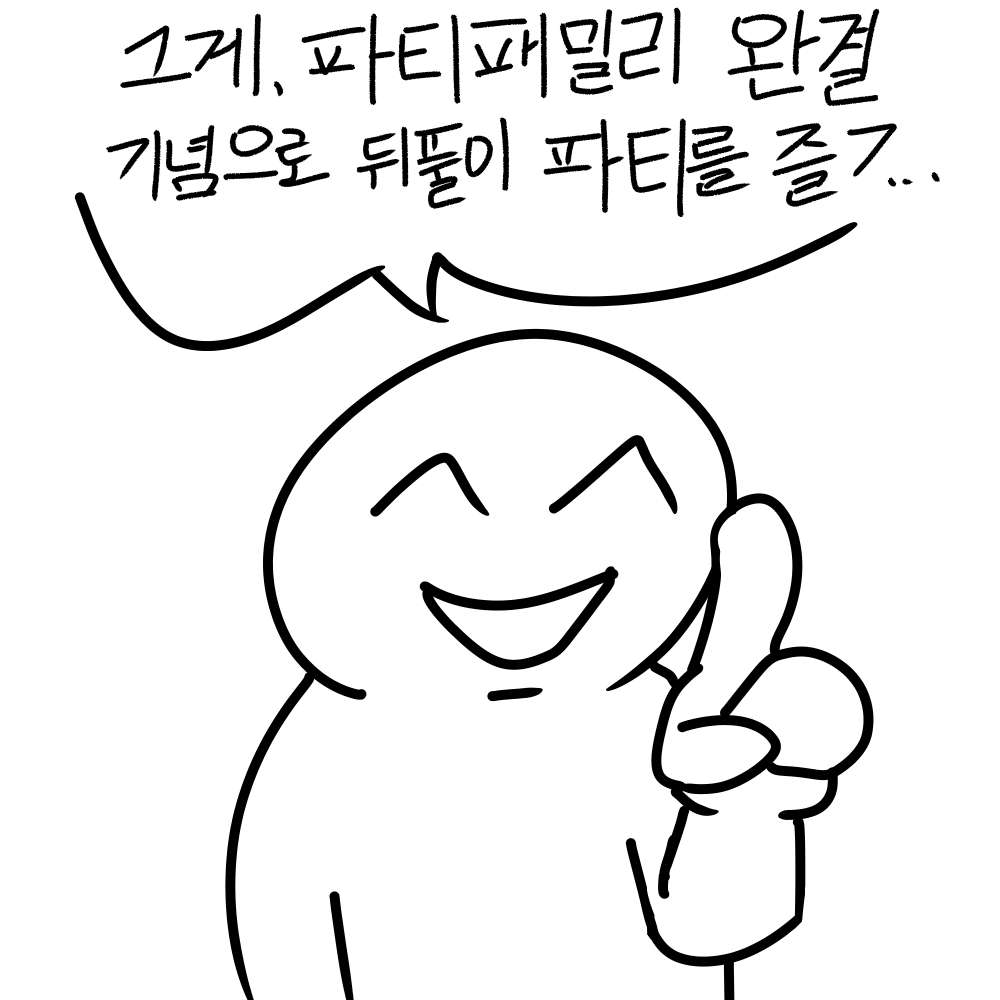 그게, 파티패밀리 완결
기념으로 뒤풀이 파티를 즐ㄱ...